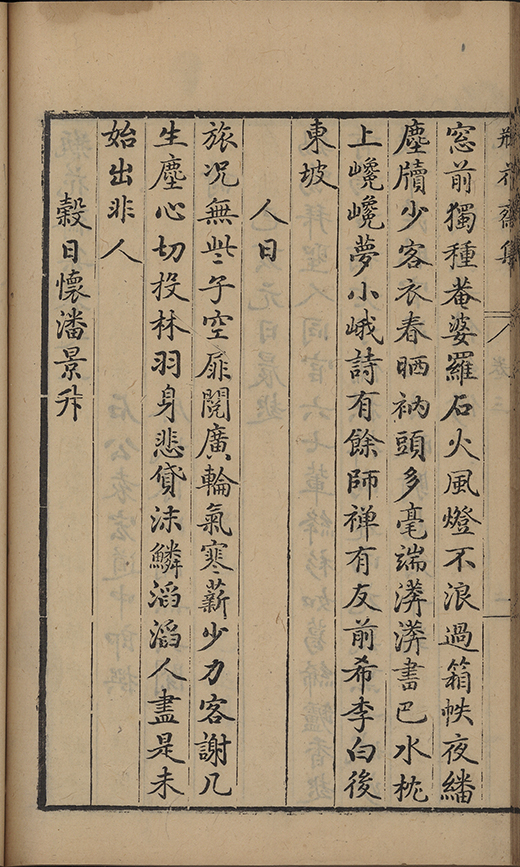 瓶花齋集 卷二 一
窓前獨種菴婆羅石火風燈不浪過箱帙夜繙
塵牘少客衣春晒衲頭多毫端漭漭畫巴水枕
上巉巉夢小峨詩有餘師禅有友前希李白後
東坡
人日
旅况無些子空扉閱廣輪氣寒薪少力客謝几
生塵心切投林羽身悲貸沫鱗滔滔人盡是未
始出非人
榖日懷潘景升